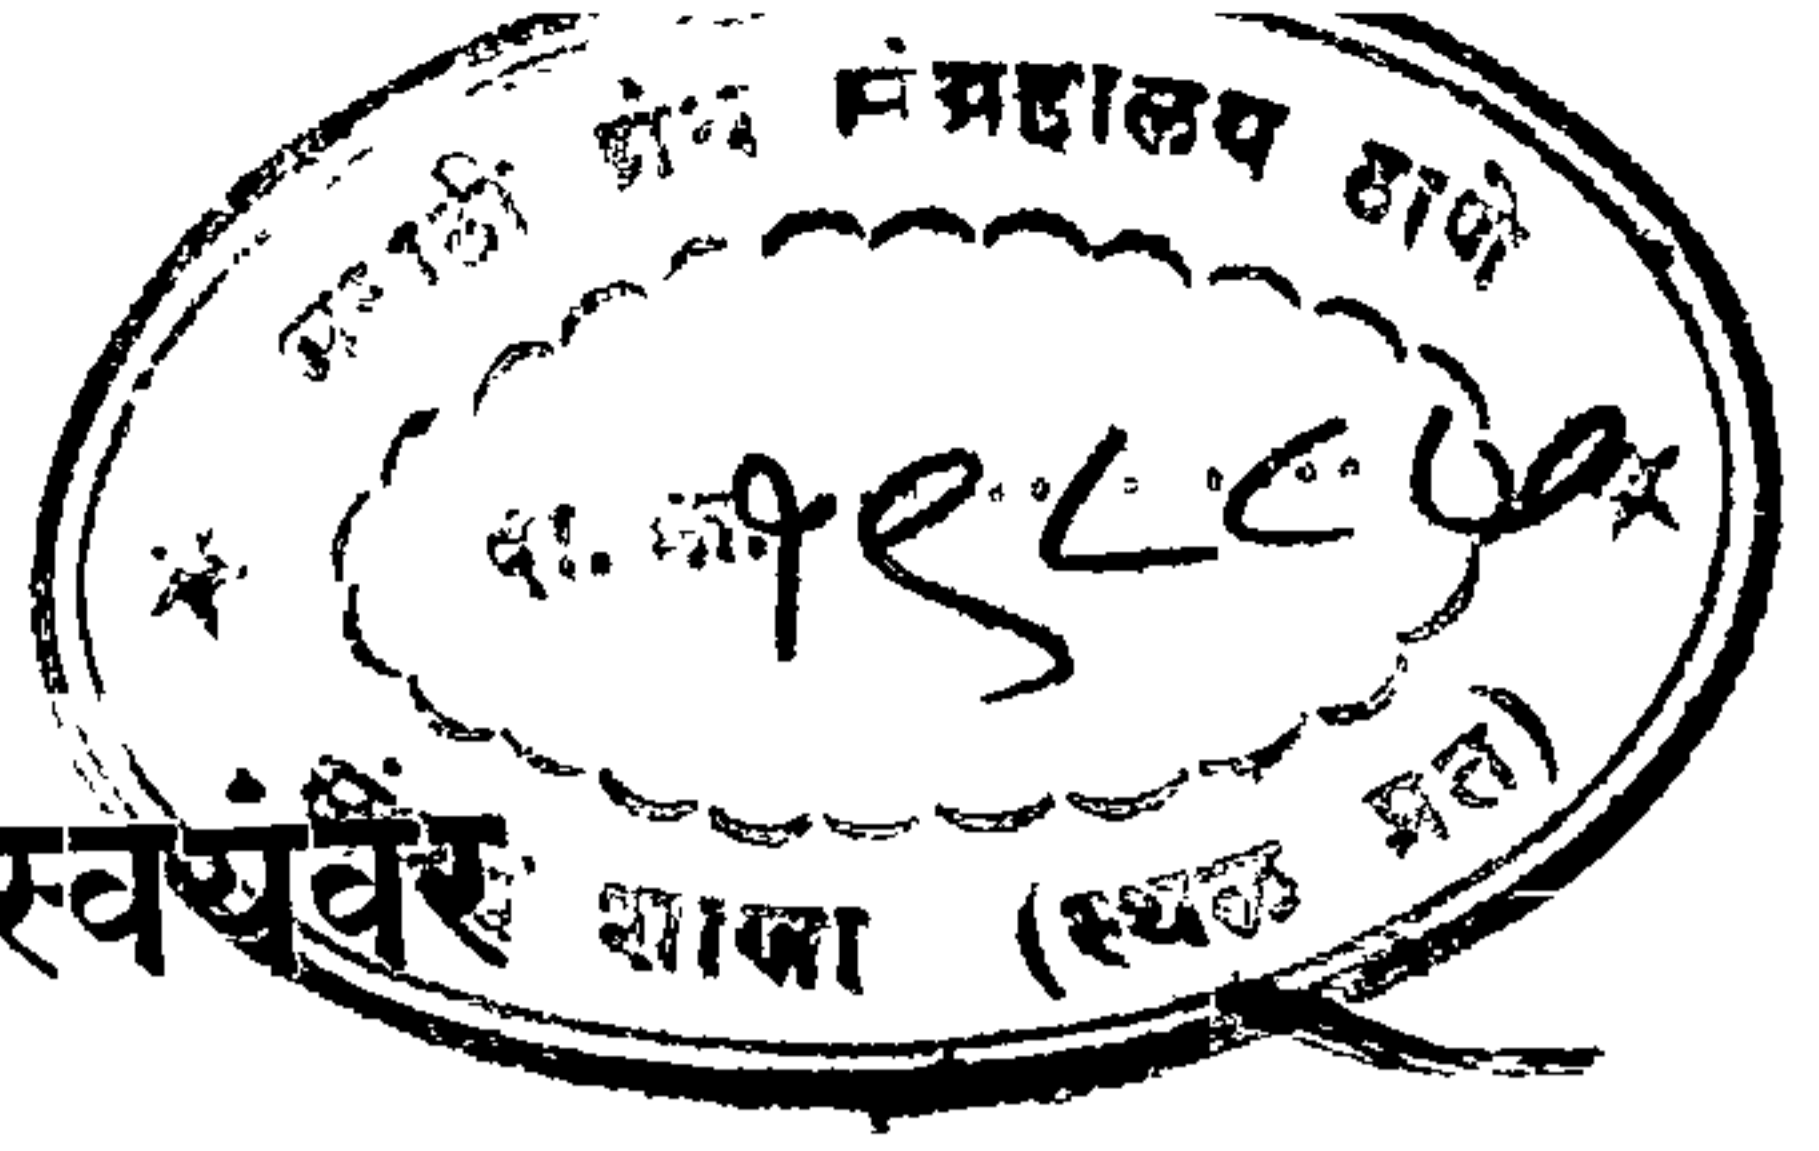 मराठी ग्रंथ संग्रहालय ठाणे
दा. क्र. १९८८७
स्वयंवर
शाखा (स्थळ प्रत)